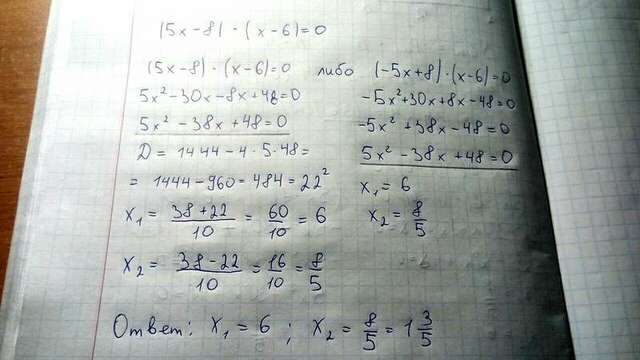 |5x-8| · (x-6)=0
(5x-8) · (x-6)=0 либо (-5x+8)·(x-6)=0
5x²-30x-8x+48=0
5x²-38x+48=0
D = 1444-4·5·48=
= 1444-960=484=22²
x₁ = 38+22/10 = 60/10 = 6
x₂ = 38-22/10 = 16/10 = 8/5
-5x²+30x+8x-48=0
-5x²+38x-48=0
5x²-38x+48=0
x₁ = 6
x₂ = 8/5
Ответ: x₁ = 6 ; x₂ = 8/5 = 1 3/5